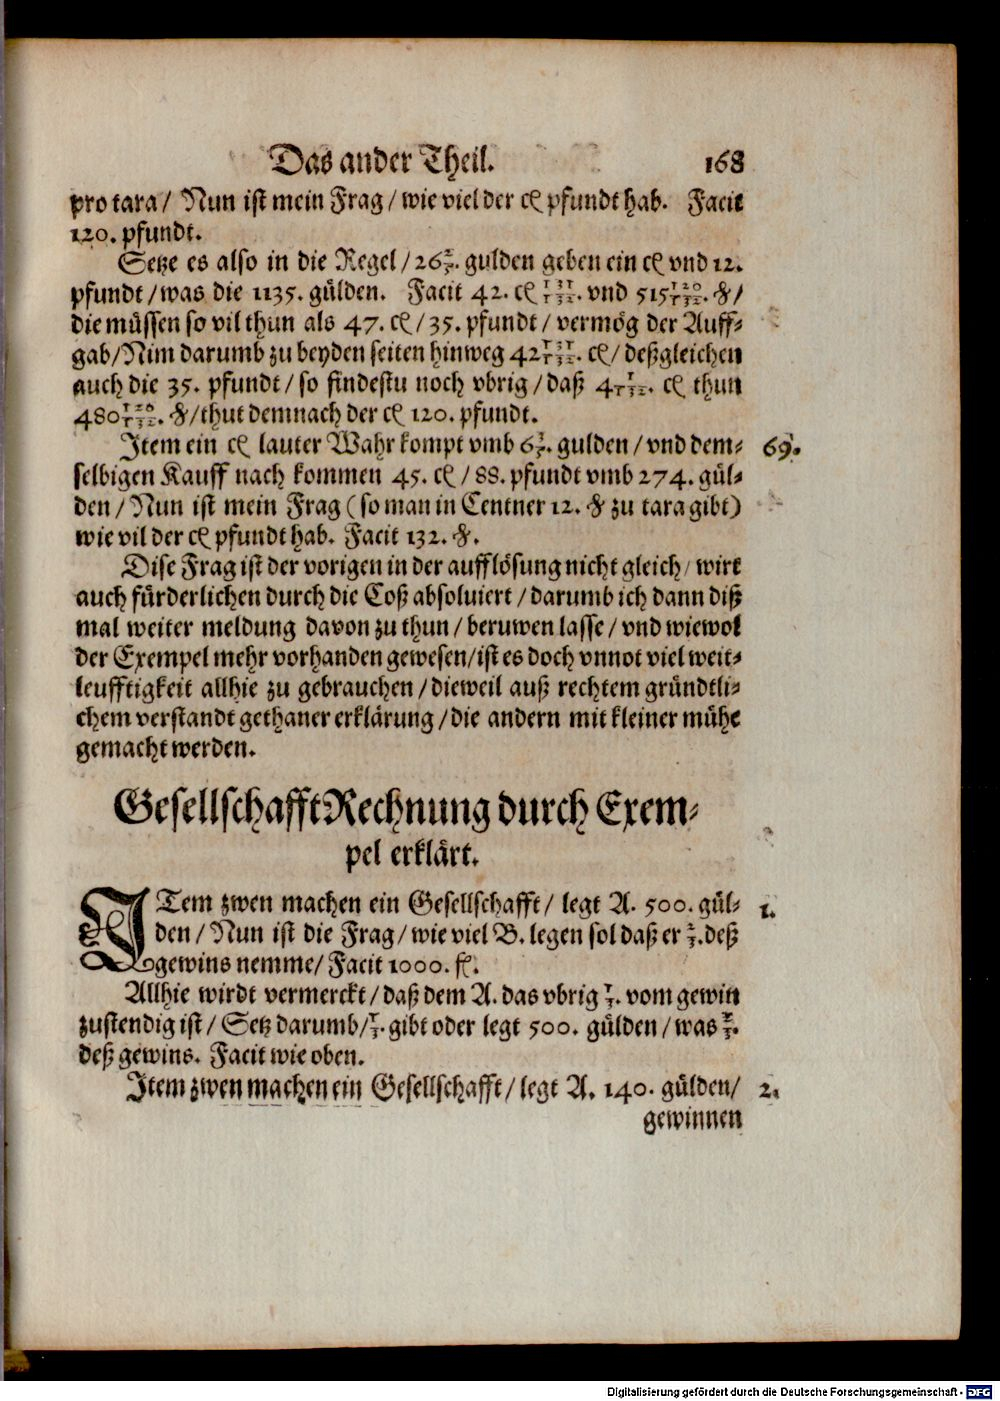 Das ander Theil. 168
pro tara / Nun ist mein Frag / wie viel der ct pfundt hab. Facit
120. pfundt.
Setze es also in die Regel / 26 2/5. gulden geben ein ct vnd 12.
pfundt / was die 1135. gülden. Facit 42. ct 131/132. vnd 515 120/132. ℔ /
die müssen so vil thun als 47. ct / 35. pfundt / vermög der Auff⸗
gab / Nim darumb zu beyden seiten hinweg 42 131/132. ct / deßgleichen
auch die 35. pfundt / so findestu noch vbrig / daß 4 1/132. ct thun
480 120/132. ℔ / thut demnach der ct 120. pfundt.
Item ein ct lauter Wahr kompt vmb 6 3/5. gulden / vnd dem⸗ 69.
selbigen Kauff nach kommen 45. ct / 88. pfundt vmb 274. gül⸗
den / Nun ist mein Frag ( so man in Centner 12. ℔ zu tara gibt )
wie vil der ct pfundt hab. Facit 132. ℔.
Dise Frag ist der vorigen in der aufflösung nicht gleich / wirt
auch fürderlichen durch die Coß absoluiert / darumb ich dann diß
mal weiter meldung davon zu thun / beruwen lasse / vnd wiewol
der Exempel mehr vorhanden gewesen / ist es doch vnnot viel weit⸗
leufftigkeit allhie zu gebrauchen / dieweil auß rechtem gründtli⸗
chem verstandt gethaner erklärung / die andern mit kleiner mühe
gemacht werden.
Gesellschafft Rechnung durch Exem⸗
pel erklärt.
ITem zwen machen ein Gesellschafft / legt A. 500. gül⸗ 1.
den / Nun ist die Frag / wie viel B. legen sol daß er 2/3. deß
gewins nemme / Facit 1000. fl.
Allhie wirdt vermerckt / daß dem A. das vbrig 1/3. vom gewin
zustendig ist / Setz darumb / 1/3. gibt oder legt 500. gülden / was 2/3.
deß gewins. Facit wie oben.
Item zwen machen ein Gesellschafft / legt A. 140. gülden / 2.
gewinnen
Digitalisierung gefördert durch die Deutsche Forschungsgemeinschaft - DFG